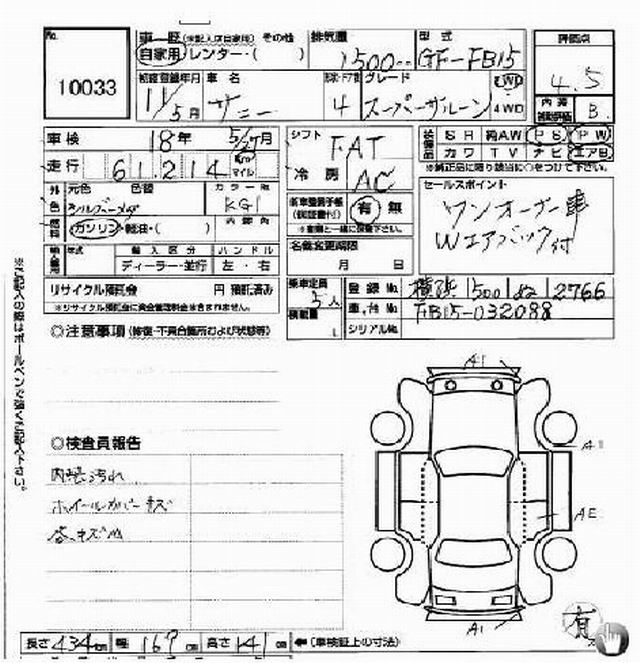 No.
10033
車歴 (未記入店自家用) その他
自家用 レンター・( )
排気量
1500cc
型式
GF-FB15
評価点
4.5
初度登録年月
11/5月
車名
サニー
4
グレード
スーパーサルーン
2WD
4WD
内装
補助評価
B
車検
18年 5/27月
走行
61214 Km マイル
シフト
FAT
冷房
AC
装備品
SR 純AW PS PW
カワ TV ナビ エアB
※純正品に限り該当に○をつけて下さい。
外色
元色 色替
シルバーメタ
カラーNo.
KG1
内装色
燃料
ガソリン・軽油・( )
新車整備手帳
(保証書付)
有 無
※車両と一緒に保管下さい。
セールスポイント
ワンオーナー車
Wエアバック付
輸入車
年式
輸入区分
ハンドル
ディーラー・並行
左・右
名義変更期限
月 日
リサイクル預託金 円 預託済み
※リサイクル預託金に資金管理料金は含まれません。
乗車定員
5人
積載量
L
登録No.
横浜 500 は 2766
車台No.
FB15-032088
シリアルNo.
◎注意事項 (修復・不具合箇所および状態等)
※ご記入の際はボールペンで強くご記入下さい。
◎検査員報告
内装汚れ
ホイールカバーキズ
各、キズ凹
A1
A1
AE
A1
有
長さ 434cm 幅 169cm 高さ 141cm ←(車検証上の寸法)